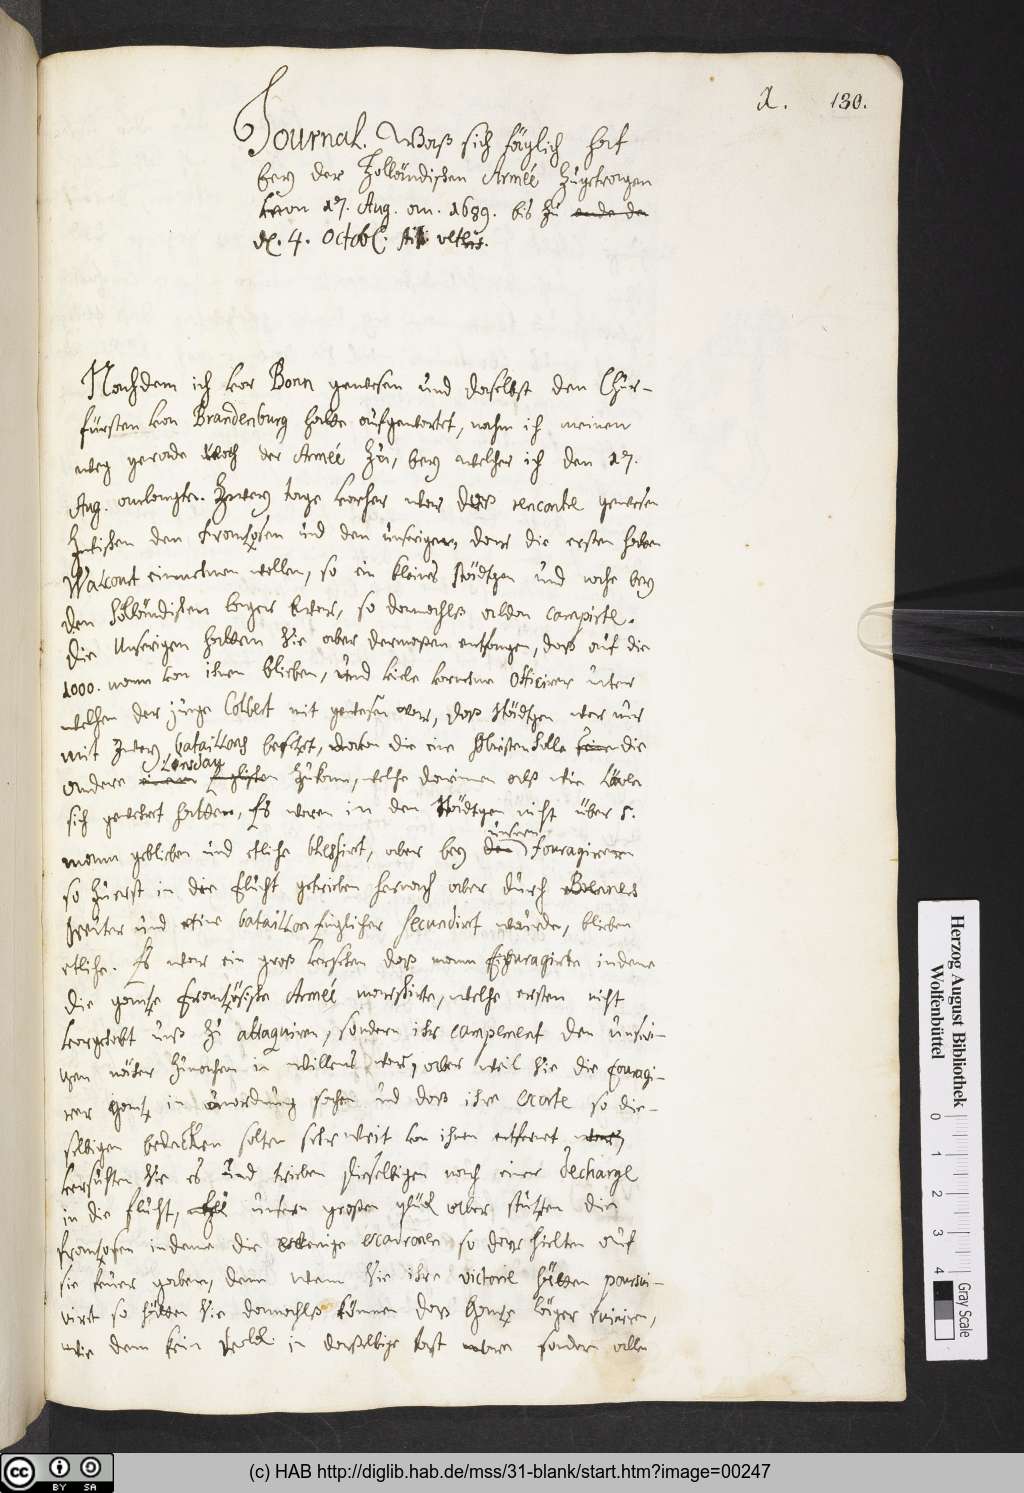 A. 130.
Journal. Waß sich täglich hat
bey der Holländischen Armée zugetragen
von 17. Aug. an. 1689. bis zu
d. 4. Octob:
Nachdem ich vor Bonn gewesen und daselbst dem Chur-
fürsten von Brandenburg hatte aufgewartet, nahm ich meinen
weg gerade nach der Armée zu, bey welcher ich den 17.
Aug. anlangte. Zwey tage vorher war daß rencontre gewesen
Zwischen den Frantzosen und den unsrigen, dan die ersten haben
Walcourt einnehmen wollen, so ein kleines städtgen und nahe bey
den Holländischen lager war, so damahls aldar campirte.
Die Unserigen hatten Sie aber dermaßen entfangen, daß auf die
1000. mann von ihnen blieben, und viele vornehme Officirer unter
welchen der junge Colbert mit gewesen war, daß städtgen war nur
mit zwey bataillons besetzt, davon die eine Obristen Holle die
Lünsdau
andere zukam, welche darinnen alß wie Löwen
sich gewehret hatten, Es waren in den Städtgen nicht über 5.
unsern
mann geblieben und etliche blessirt, aber bey fouragirern
so zuerst in die flucht getrieben hernach aber durch
Reuter und eine bataillon Englischer secundirt wurden, blieben
etliche. Es war ein groß versehen daß mann fouragirte indeme
die gantze Frantzösische Armée marchirte, welche ersten nicht
vorgehabt unß zu attaquiren, sondern ihr campement den unsri-
gen näher zumachen in willens war, aber weil Sie die fouragi-
rer gantz in unordnung sahen und daß ihre escorte so die-
selbigen bedecken solten sehr weit von ihnen entfernet
versuchten Sie es und trieben dieselbigen nach einer decharge
in die flucht, zu unsern großen glück aber stutzten die
frantzosen indeme die wenige escadronen so dar hielten auf
sie feuer gaben, denn wenn Sie ihre victorie hätten poursui-
virt so hätten Sie damahls können daß gantze läger ruiniren,
wie denn kein Volck in daßelbige fast ware sondern alles
Herzog August Bibliothek
Wolfenbüttel
0 1 2 3 4
Gray Scale
cc BY SA
(c) HAB http://diglib.hab.de/mss/31-blank/start.htm?image=00247